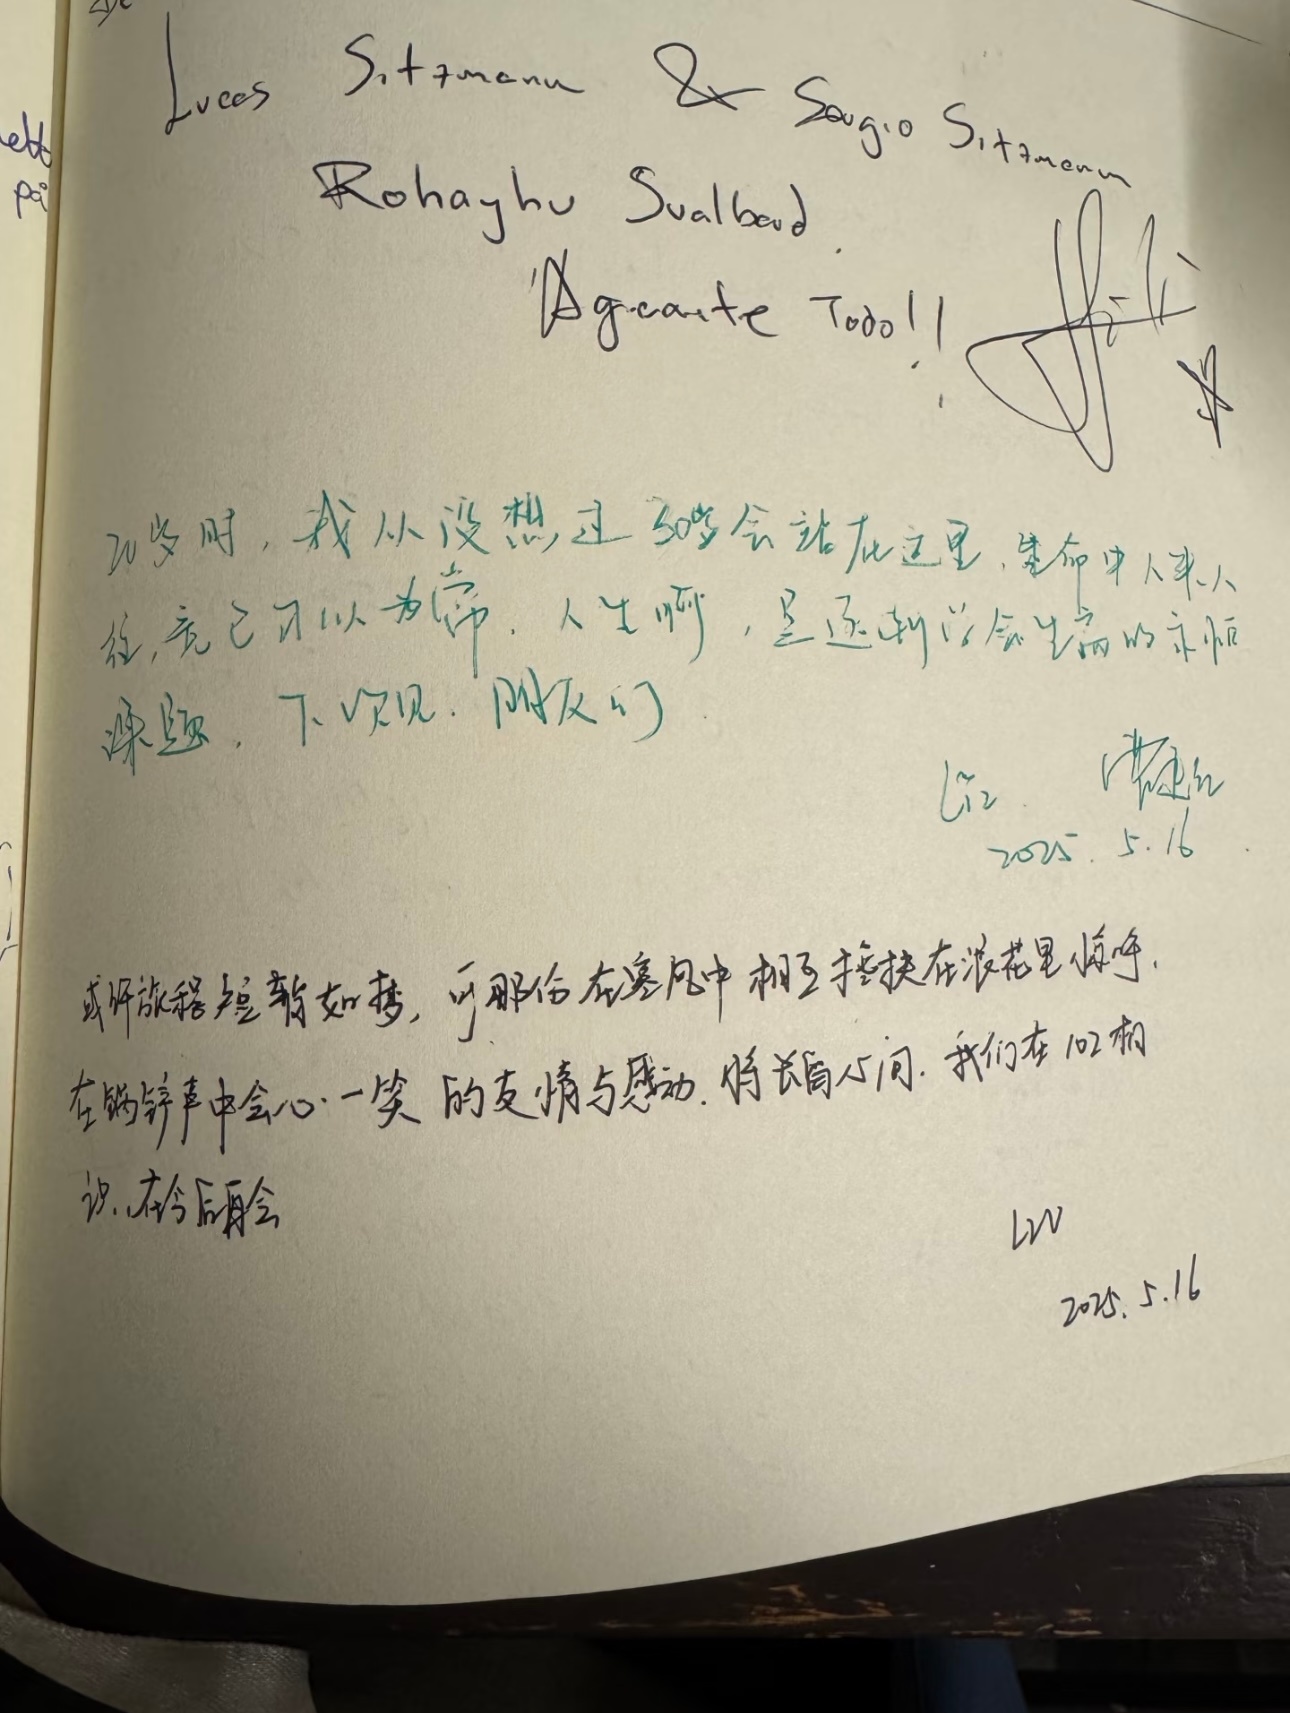 Lucas Sitzmann & Sergio Sitzmann
Rohayhu Svalbard
Aguante Todo!!
20岁时，我从没想过30岁会站在这里，生命中人来人
往，竟已可以为常．人生啊，是逐渐学会告别的永恒
课题．下次见．朋友们．
Liz
2025.5.16
或许旅程短暂如梦，可那份在寒风中相互搀扶在浪花里惊呼．
在锅锌声中会心一笑的友情与感动．将长留心间．我们在102相
识．在今后再会
LW
2025.5.16